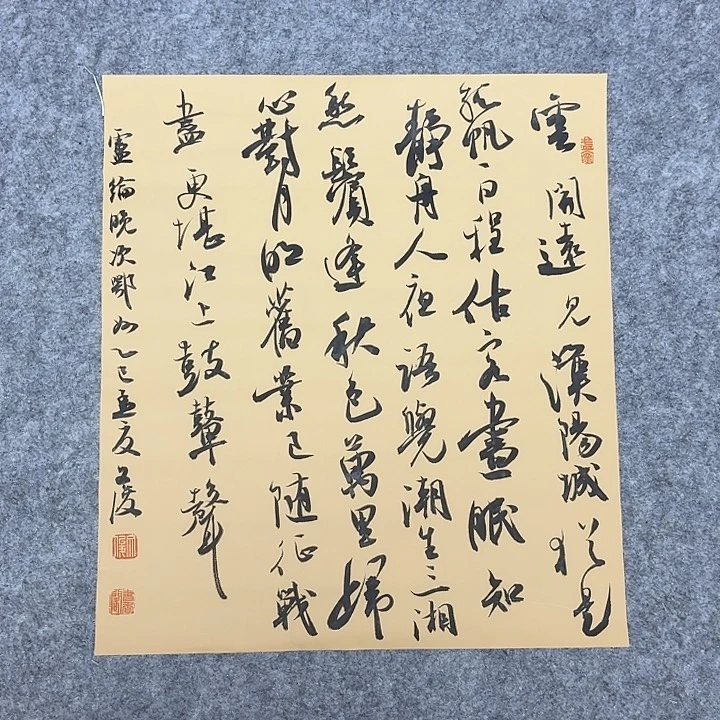 雲開遠見漢陽城猶是
孤帆一日程估客晝眠知
靜舟人夜語覺潮生三湘
愁鬢逢秋色萬里歸
心對月明舊業已隨征戰
盡更堪江上鼓鼙聲
盧綸晚次鄂州乙巳孟夏